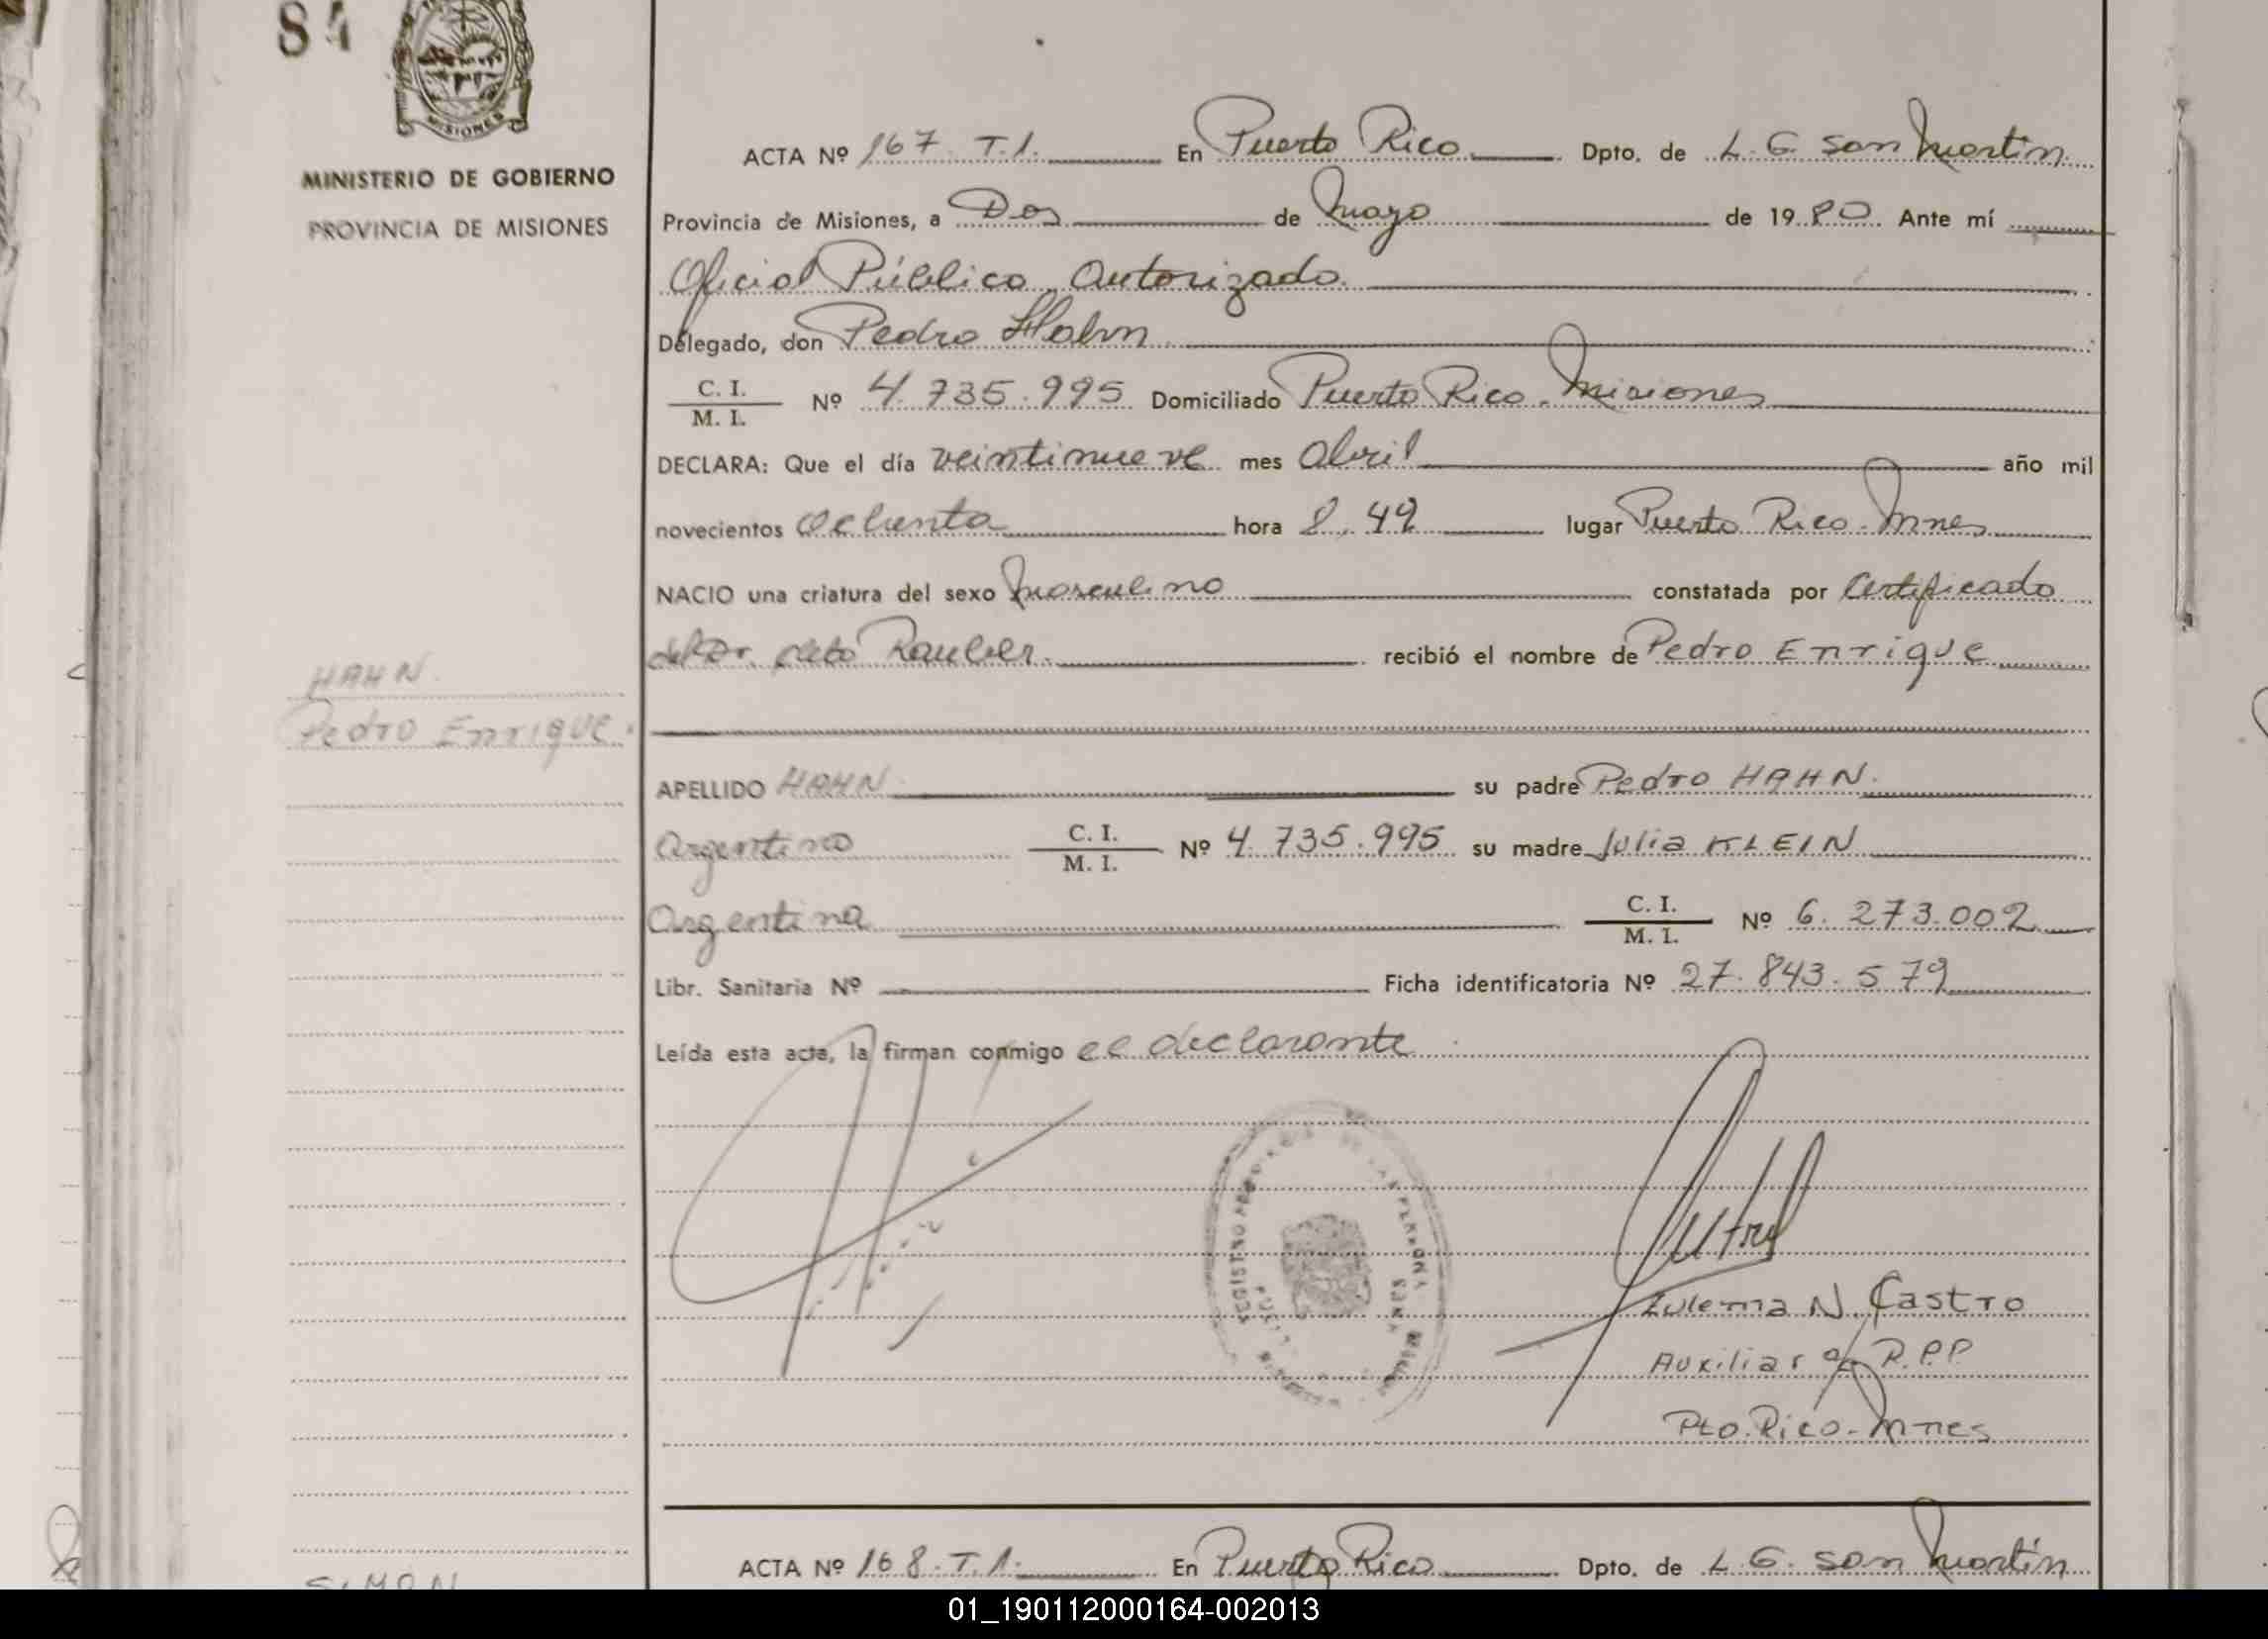 84
MISIONES
MINISTERIO DE GOBIERNO
PROVINCIA DE MISIONES
HAHN.
Pedro Enrique.
ACTA Nº 167 T.1. En Puerto Rico Dpto. de L. G. San Martín
Provincia de Misiones, a Dos de Mayo de 1980 Ante mí
Oficial Público Autorizado.
Delegado, don Pedro Hahn
C. I. / M. I. Nº 4.735.995 Domiciliado Puerto Rico. Misiones
DECLARA: Que el día veintinueve mes abril año mil
novecientos ochenta hora 8,49 lugar Puerto Rico-Mnes
NACIO una criatura del sexo Masculino constatada por Certificado
del Dr. Rauber. recibió el nombre de Pedro Enrique
APELLIDO HAHN su padre Pedro HAHN.
Argentino C. I. / M. I. Nº 4.735.995 su madre Julia KLEIN
Argentina C. I. / M. I. Nº 6.273.002
Libr. Sanitaria Nº Ficha identificatoria Nº 27.843.579
Leída esta acta, la firman conmigo el declarante
Zulema N. Castro
Auxiliar R.P.P
Pto. Rico-Mnes
ACTA Nº 168. T.1. En Puerto Rico Dpto. de L. G. San Martín
SIMON
01_190112000164-002013